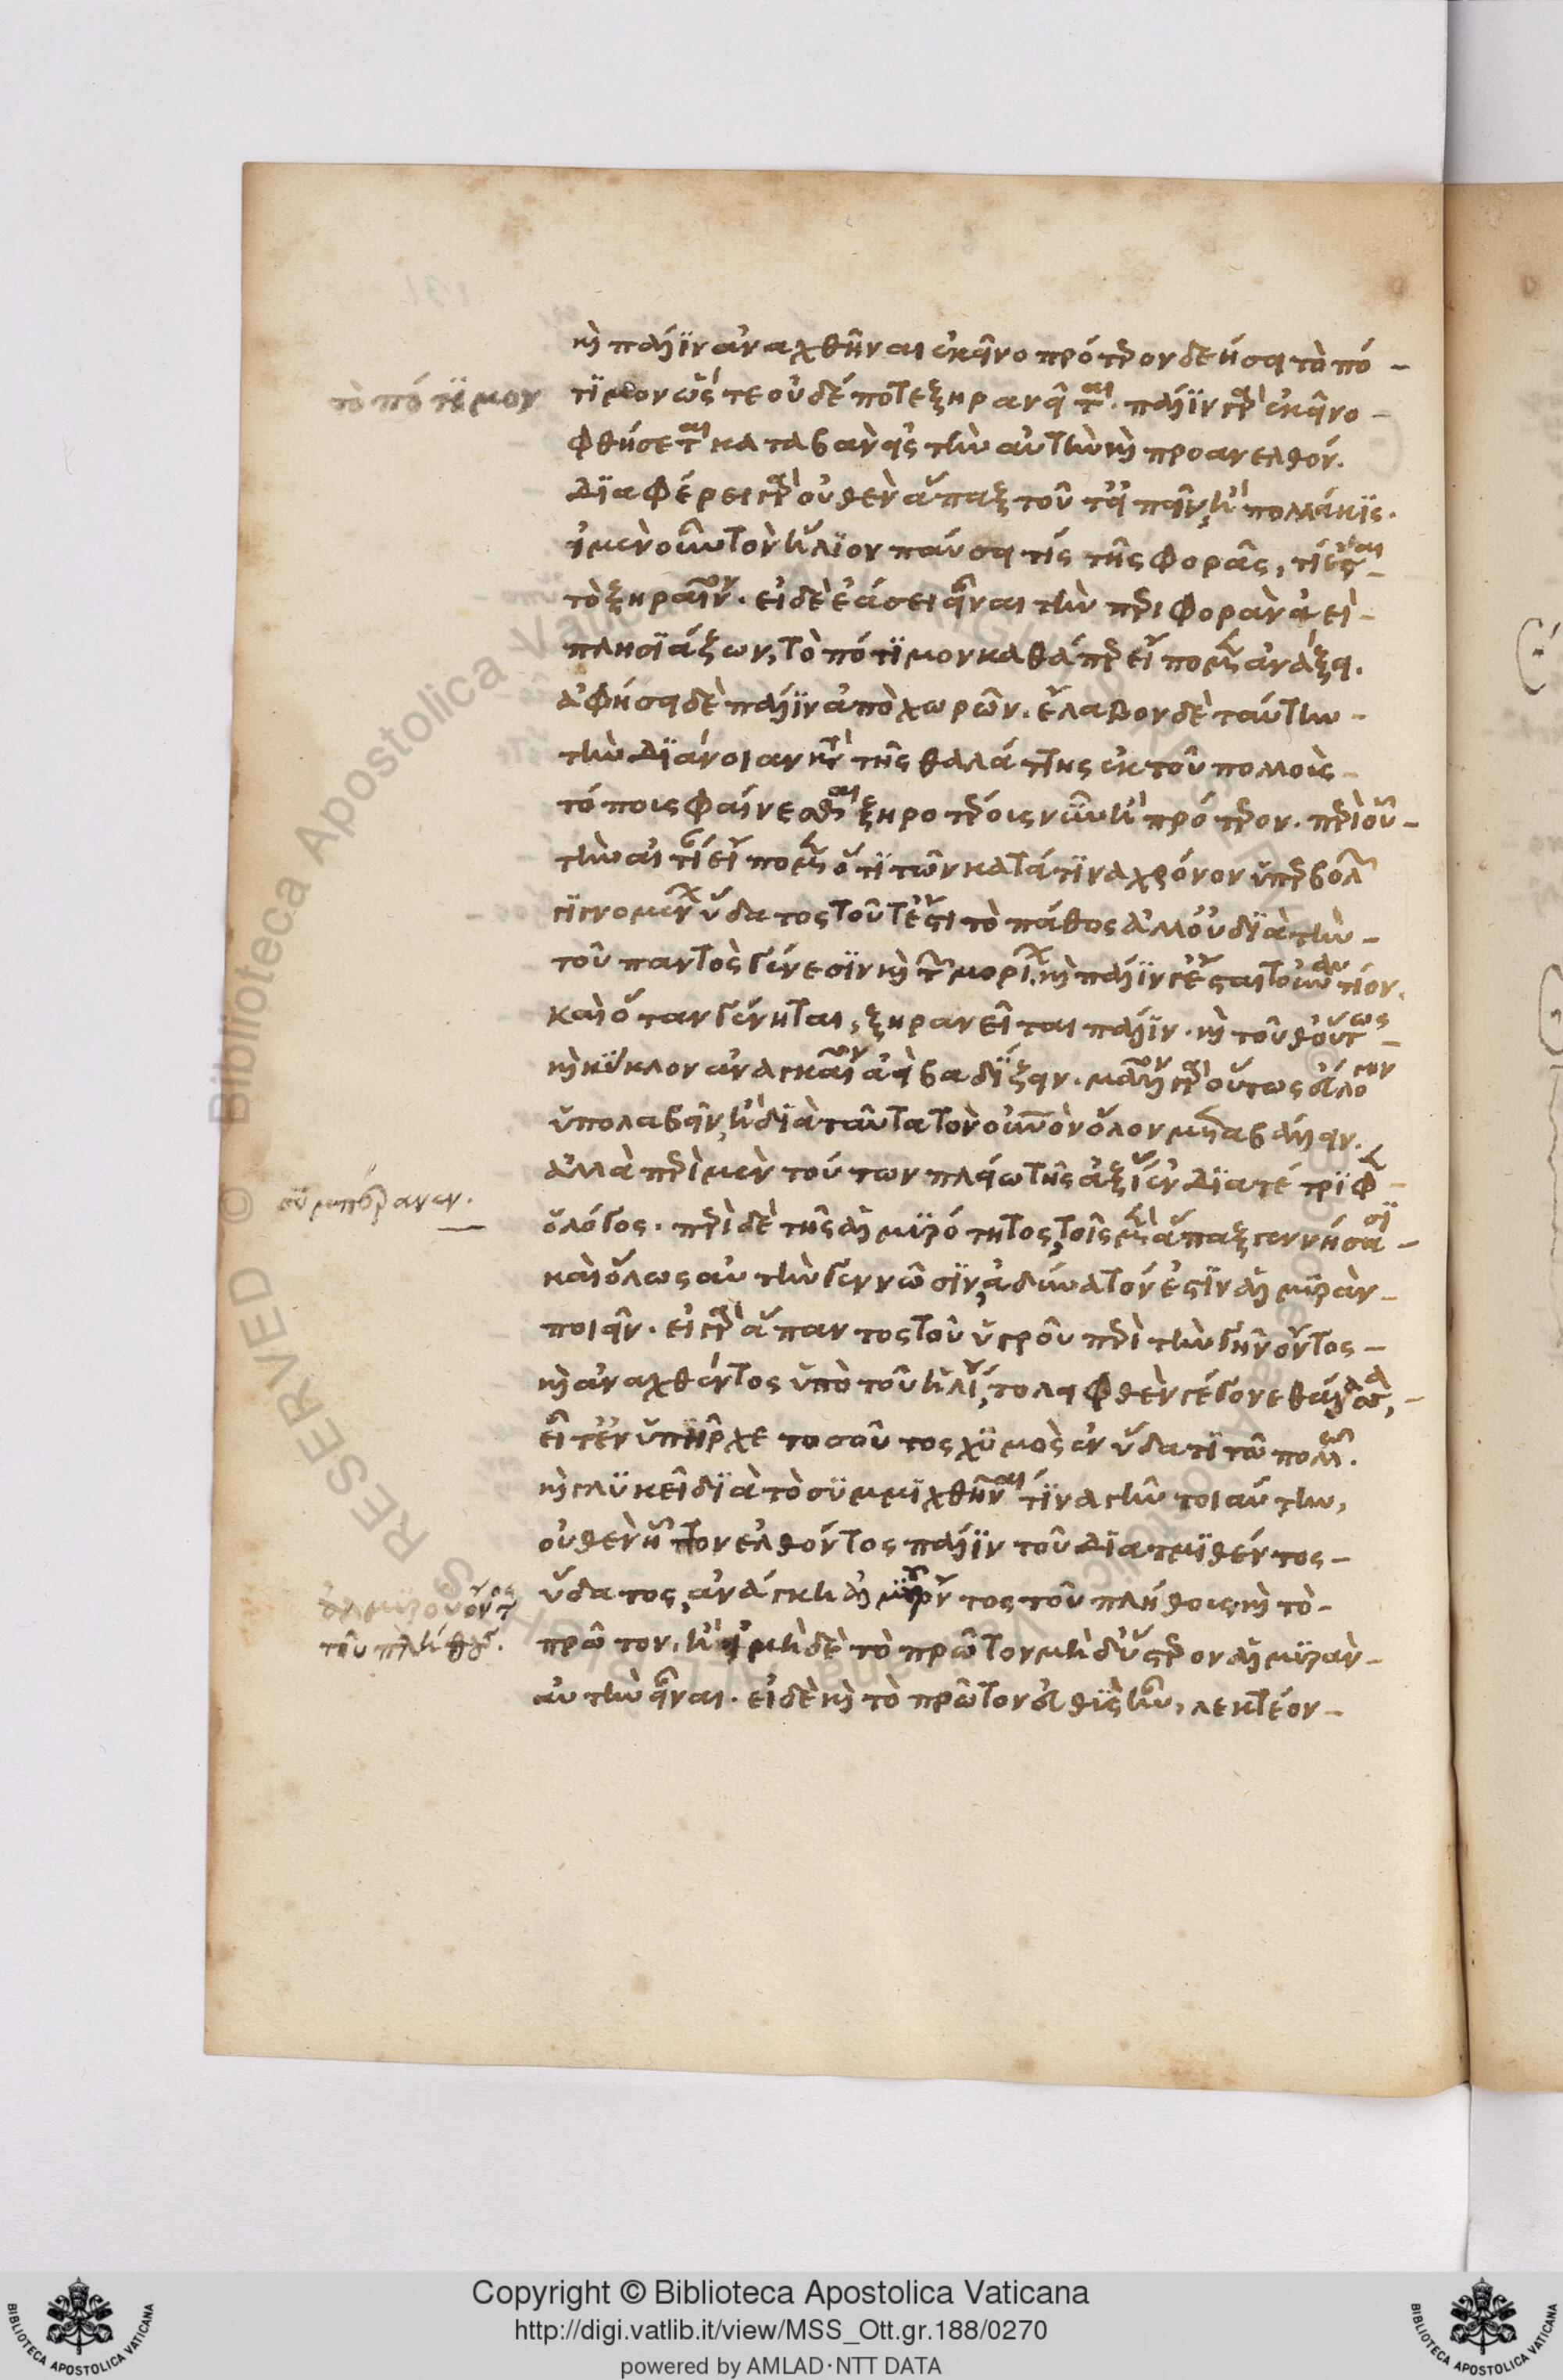 καὶ πάλιν ἀναχθῆναι ἐκεῖνο πρότερον δεήσει τὸ πό-
τιμον ὥστε οὐδέποτε ξηρανεῖται. πάλιν γὰρ ἐκεῖνο
φθήσεται καταβὰν εἰς τὴν αὐτὴν καὶ προανελθόν.
διαφέρει γὰρ οὐθὲν ἅπαξ τοῦτ' εἰπεῖν, ἢ πολλάκις.
εἰ μὲν οὖν τὸν ἥλιον παύσει τίς τῆς φορᾶς, τί ἔσται
τὸ ξηραῖνον. εἰ δὲ ἐάσει εἶναι τὴν περιφορὰν ἀεὶ
πλησιάζων, τὸ πότιμον καθάπερ εἴπομεν ἀνάξει.
ἀφήσει δὲ πάλιν ἀποχωρῶν. ἔλαβον δὲ ταύτην
τὴν διάνοιαν κατὰ τῆς θαλάττης ἐκ τοῦ πολλοὺς
τόπους φαίνεσθαι ξηροτέρους νῦν ἢ πρότερον. περὶ οὗ
τὴν αἰτίαν εἴπομεν ὅτι τῶν κατά τινα χρόνον ὑπερβολῶν
γιγνομένων ὕδατος τοῦτ' ἔστι τὸ πάθος ἀλλ' οὐ διὰ τὴν
τοῦ παντὸς γένεσιν καὶ τῶν μορίων. καὶ πάλιν γε ἔσται τοὐναντίον.
καὶ ὅταν γένηται, ξηρανεῖται πάλιν. καὶ τοῦθ' οὕτως
καὶ κύκλον ἀναγκαῖον ἀεὶ βαδίζειν. μᾶλλον γὰρ οὕτως εὔλογον
ὑπολαβεῖν, ἢ διὰ ταῦτα τὸν οὐρανὸν ὅλον μεταβάλλειν.
ἀλλὰ περὶ μὲν τούτων πλείω τῆς ἀξίας ἐνδιατέτριφεν
ὁ λόγος. περὶ δὲ τῆς ἁλμυρότητος, τοῖς μὲν ἅπαξ γεννήσασι
καὶ ὅλως αὐτὴν γεννῶσιν, ἀδύνατόν ἐστιν ἁλμυρὰν
ποιεῖν. εἰ γὰρ ἅπαντος τοῦ ὑγροῦ περὶ τὴν γῆν ὄντος
καὶ ἀναχθέντος ὑπὸ τοῦ ἡλίου, τὸ λειφθὲν γέγονε θάλασσα,
εἴτ' ἐνυπῆρχε τοσοῦτος χυμὸς ἐν ὕδατι τῷ πολλῷ.
καὶ γλυκεῖ διὰ τὸ συμμιχθῆναι τινα γῆν τοιαύτην,
οὐθὲν ἧττον ἐλθόντος πάλιν τοῦ διατμισθέντος
ὕδατος, ἀνάγκη ἁλμυρὸν τος τοῦ πλήθους καὶ τὸ
πρῶτον. ἢ εἰ μὴ δὲ τὸ πρῶτον μὴ δ' ὕστερον ἁλμυρὰν
αὐτὴν εἶναι. εἰ δὲ καὶ τὸ πρῶτον εὐθὺς ἦν, λεκτέον
τὸ πότιμον
τοῦ πλήθους.
Copyright © Biblioteca Apostolica Vaticana
http://digi.vatlib.it/view/MSS_Ott.gr.188/0270
powered by AMLAD·NTT DATA
BIBLIOTECA APOSTOLICA VATICANA
BIBLIOTECA APOSTOLICA VATICANA